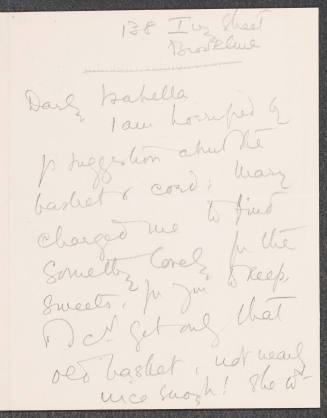 138 Ivy Street
Brookline
Darlg Isabella
I am horrified by
yr suggestion about the
basket & cord; Mary
charged me to find
Something lovely for the
sweets, for you to keep,
& I cd get only that
old basket, not nearly
nice enough! She